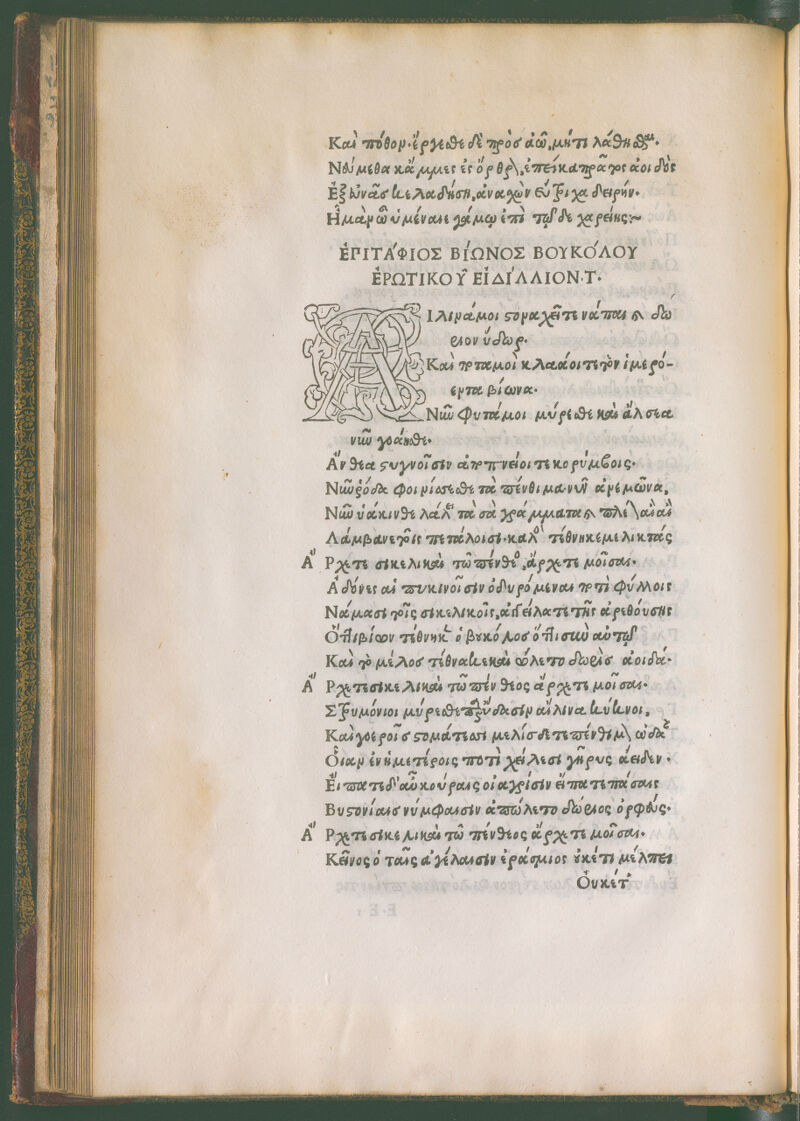 Καὶ πόθον. ἔργεσθε δὲ πρὸς ἀῶ, μήτι λάθησθαι.
Νεύμεθα κἄμμες ἐς ὄρθρον, ἐπεί κα πρᾶτος ἀοιδὸς
Ἐξ εὐνᾶς κελαδήση, ἀνασχὼν εὔτριχα δειρήν.
Ημὰν ὦ ὑμέναιε γάμῳ ἐπὶ τῷδε χαρείης:~
ἘΡΙΤΆΦΙΟΣ ΒΊΩΝΟΣ ΒΟΥΚΌΛΟΥ
ἘΡΩΤΙΚΟΥ͂ ΕἸΔΊΛΛΙΟΝ.Τ.
ΑΙλινά μοι στοναχεῖτε νάπαι καὶ δώ
ριον ὕδωρ.
Καὶ ποταμοὶ κλαίοιτε τὸν ἱμερό-
εντα βίωνα.
Νῦν φυτά μοι μύρεσθε καὶ ἄλσεα
νῦν γοάοισθε.
Ἄνθεα στυγνοῖσιν ἀποπνείοιτε κορύμβοις.
Νῦν ῥόδα φοινίσσεσθε τὰ πένθιμα νῦν ἀνεμῶνα,
Νῦν ὑάκινθε λάλει τὰ σὰ γράμματα καὶ πλέον αἲ αἲ
Λάμβανε τοῖς πετάλοισι. καλὸς τέθνηκε μελικτάς
Ἄ Ρχετε σικελικαὶ τῶ πένθεος, ἄρχετε μοῖσαι.
Ἀδόνες αἱ πυκινοῖσιν ὀδυρόμεναι ποτὶ φύλλοις
Νάμασι τοῖς σικελικοῖς, ἀγγείλατε τῆς ἀρεθούσης
Ὅττι βίων τέθνηκεν ὁ βουκόλος ὅττι σὺν αὐτῷ
Καὶ τὸ μέλος τέθνακε καὶ ὤλετο δωρὶς ἀοιδά.
Ἄ Ρχετε σικελικαὶ τῶ πένθεος ἄρχετε μοῖσαι.
Στρυμόνιοι μύρεσθε παρ' ὕδασιν αἴλινα κύκνοι,
Καὶ γοεροῖς στομάτεσσι μελίσδετε πένθιμον ὠδὰν
Οἵαν ἐν ἡμετέροις ποτὶ χείλεσι γῆρυς ἄειδεν.
Εἴπατε δ' αὖ κούραις οἰαγρίσιν εἴπατε πάσαις
Βυστονίαις νύμφαισιν ἀπώλετο δώριος ὀρφεύς.
Ἄ Ρχετε σικελικαὶ τῶ πένθεος ἄρχετε μοῖσαι.
Κεῖνος ὁ ταῖς ἀγέλαισιν ἐράσμιος οὐκέτι μέλπει
Οὐκέτ'